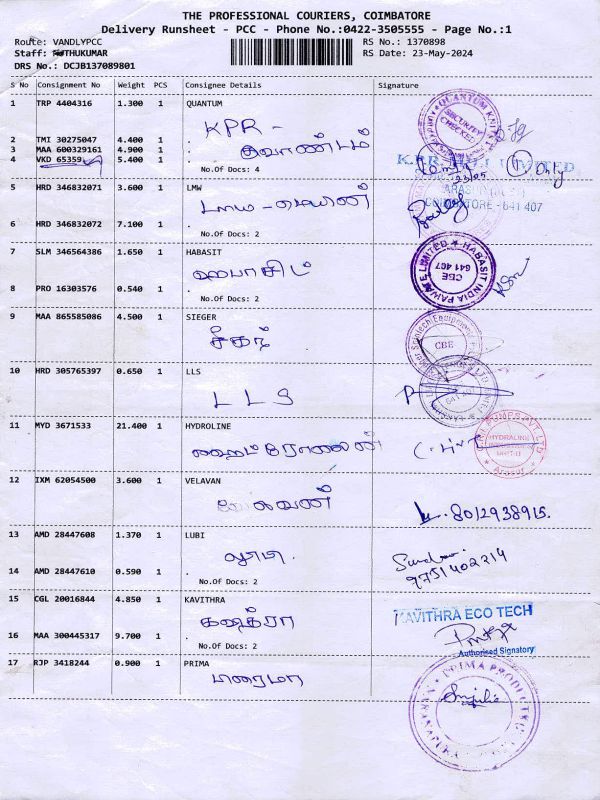 THE PROFESSIONAL COURIERS, COIMBATORE
Delivery Runsheet - PCC - Phone No.:0422-3505555 - Page No.:1
Route: VANDLYPCC
RS No.: 1370898
Staff: MUTHUKUMAR
RS Date: 23-May-2024
DRS No.: DCJB137089801
S No Consignment No Weight PCS Consignee Details Signature
1 TRP 4404316 1.300 1 QUANTUM
KPR - குவாண்டம்
2 TMI 30275047 4.400 1 .
3 MAA 600329161 4.900 1 .
4 VKD 65359 5.400 1 .
No.Of Docs: 4
SECURITY CHECKED
K.P.R. MILL LIMITED
COIMBATORE - 641 407
5 HRD 346832071 3.600 1 LMW
6 HRD 346832072 7.100 1 .
No.Of Docs: 2
7 SLM 346564386 1.650 1 HABASIT
ஹபாசிட்
8 PRO 16303576 0.540 1 .
No.Of Docs: 2
HABASIT INDIA PRIVATE LIMITED
CBE
641 407
9 MAA 865585086 4.500 1 SIEGER
சீகர்
CBE
10 HRD 305765397 0.650 1 LLS
LLS
641 407
11 MYD 3671533 21.400 1 HYDROLINE
ஹைட்ரோலைன்
HYDROLINE
12 IXM 62054500 3.600 1 VELAVAN
வேலவன்
8012938915.
13 AMD 28447608 1.370 1 LUBI
லுபி.
14 AMD 28447610 0.590 1 .
No.Of Docs: 2
9751402214
15 CGL 20016844 4.850 1 KAVITHRA
கவித்ரா
16 MAA 300445317 9.700 1 .
No.Of Docs: 2
KAVITHRA ECO TECH
Authorised Signatory
17 RJP 3418244 0.900 1 PRIMA
பிரைமா